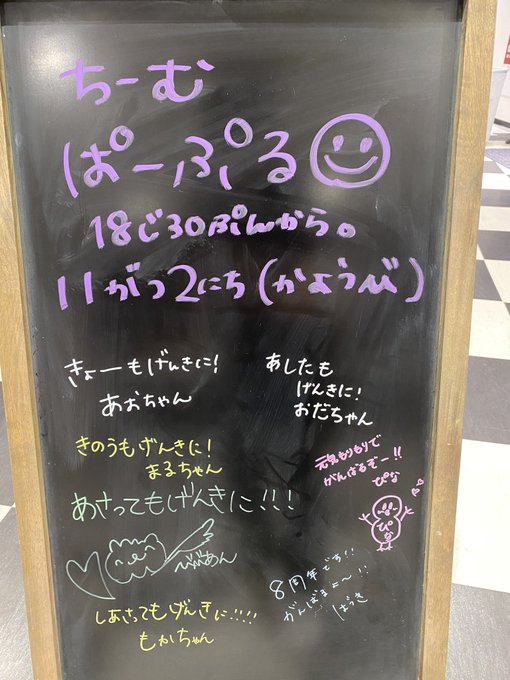 ちーむ
ぱーぷる
18じ30ぷんから。
11がつ2にち(かようび)
きょーもげんきに!
あおちゃん
あしたも
げんきに!
おだちゃん
きのうもげんきに!
まるちゃん
元気もりもりで
がんばるぞー!!
ぴな
ぴな
あさってもげんきに!!!
べびあん
8周年です!!
がんばまに〜!!
ばっき
しあさってもげんきに!!!!
もかちゃん